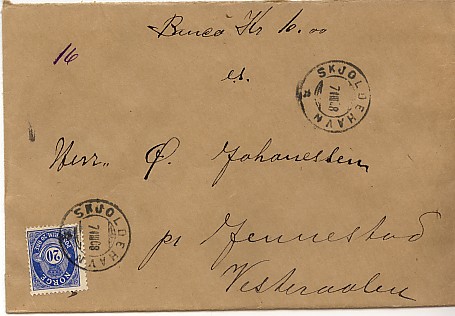 Kr 10.00
16
SKJOLDEHAVN
7 III 08
Herr. Ø. Johanessen
SKJOLDEHAVN
7 III 08
20
NORGE
pr Jennestad
Vesteraalen